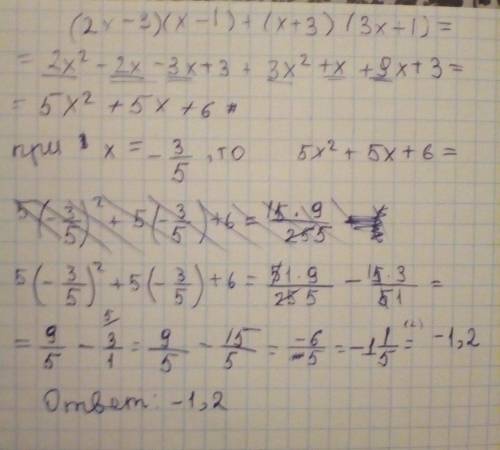 (2x-3)(x-1)+(x+3)(3x-1)=
= 2x² - 2x - 3x + 3 + 3x² + x + 9x + 3 =
= 5x² + 5x + 6
при x = -3/5, то 5x² + 5x + 6 =
5(-3/5)² + 5(-3/5) + 6 = 15·9/25 5
5(-3/5)² + 5(-3/5) + 6 = 51·9/25 5 - 15·3/51 =
= 9/5 - 3/1 = 9/5 - 15/5 = -6/5 = -1 1/5 = -1,2
Ответ: -1,2